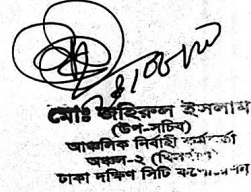 মোঃ জহিরুল ইসলাম
(উপ-সচিব)
আঞ্চলিক নির্বাহী কর্মকর্তা
অঞ্চল-২
ঢাকা দক্ষিণ সিটি কর্পোরেশন